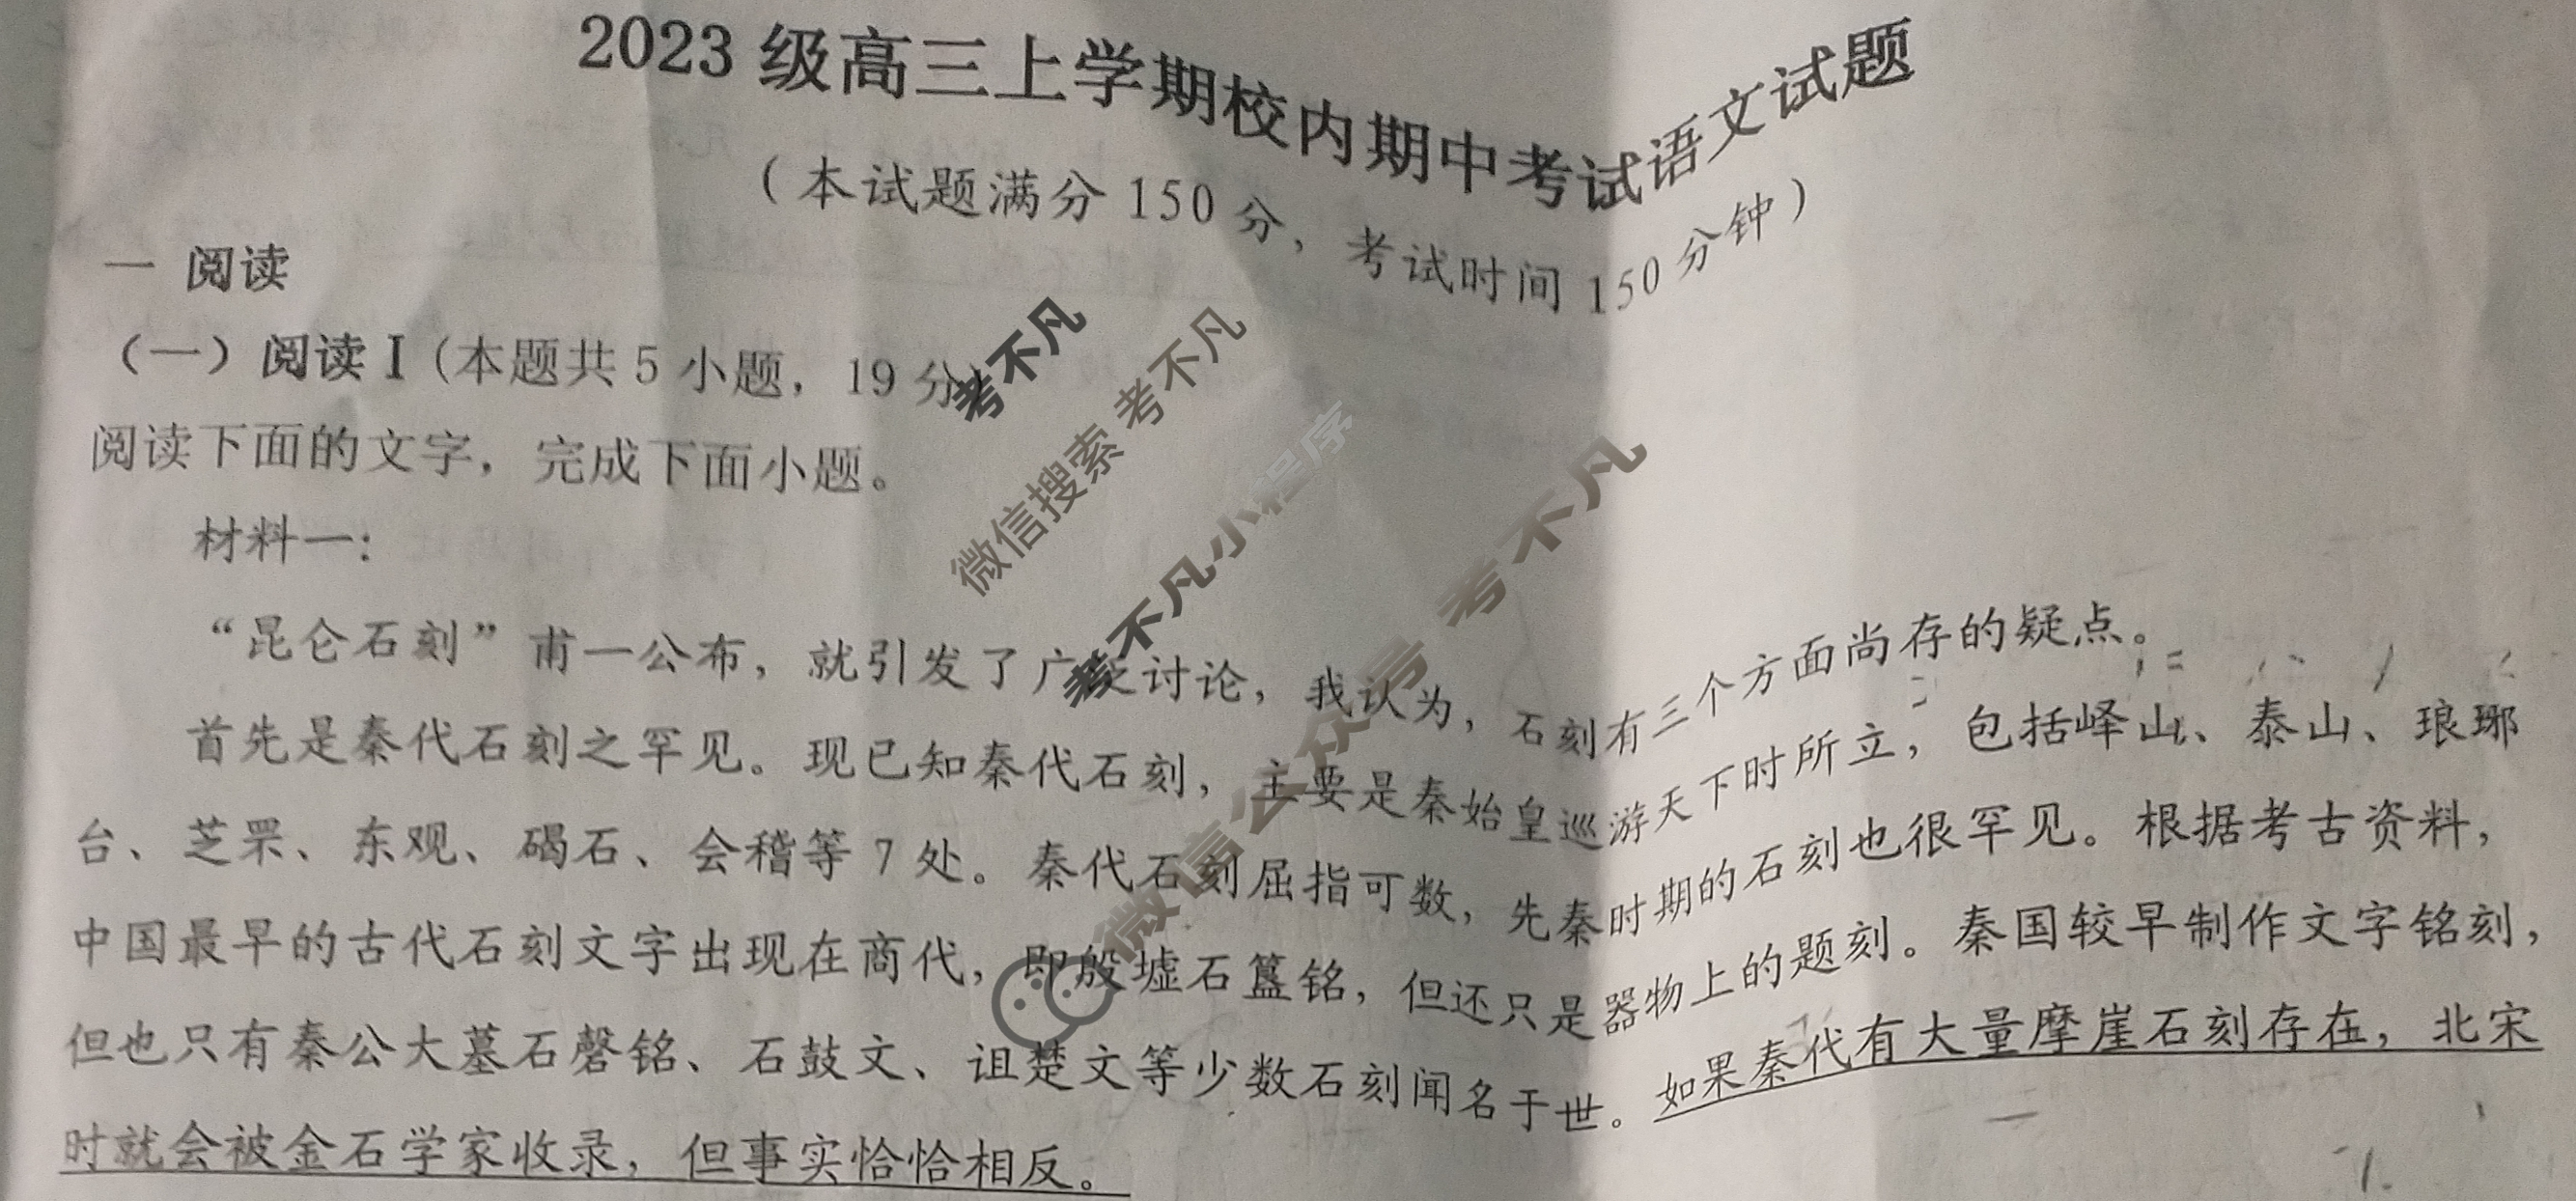 2023 级高三上学期校内期中考试语文试题
（本试题满分 150 分，考试时间 150 分钟）
一 阅读
（一）阅读 I（本题共 5 小题，19 分）
阅读下面的文字，完成下面小题。
材料一：
“昆仑石刻”甫一公布，就引发了广泛讨论，我认为，石刻有三个方面尚存的疑点。
首先是秦代石刻之罕见。现已知秦代石刻，主要是秦始皇巡游天下时所立，包括峄山、泰山、琅琊
台、芝罘、东观、碣石、会稽等 7 处。秦代石刻屈指可数，先秦时期的石刻也很罕见。根据考古资料，
中国最早的古代石刻文字出现在商代，即殷墟石簋铭，但还只是器物上的题刻。秦国较早制作文字铭刻，
但也只有秦公大墓石磬铭、石鼓文、诅楚文等少数石刻闻名于世。如果秦代有大量摩崖石刻存在，北宋
时就会被金石学家收录，但事实恰恰相反。
考不凡
微信搜索 考不凡
考不凡小程序
微信公众号 考不凡